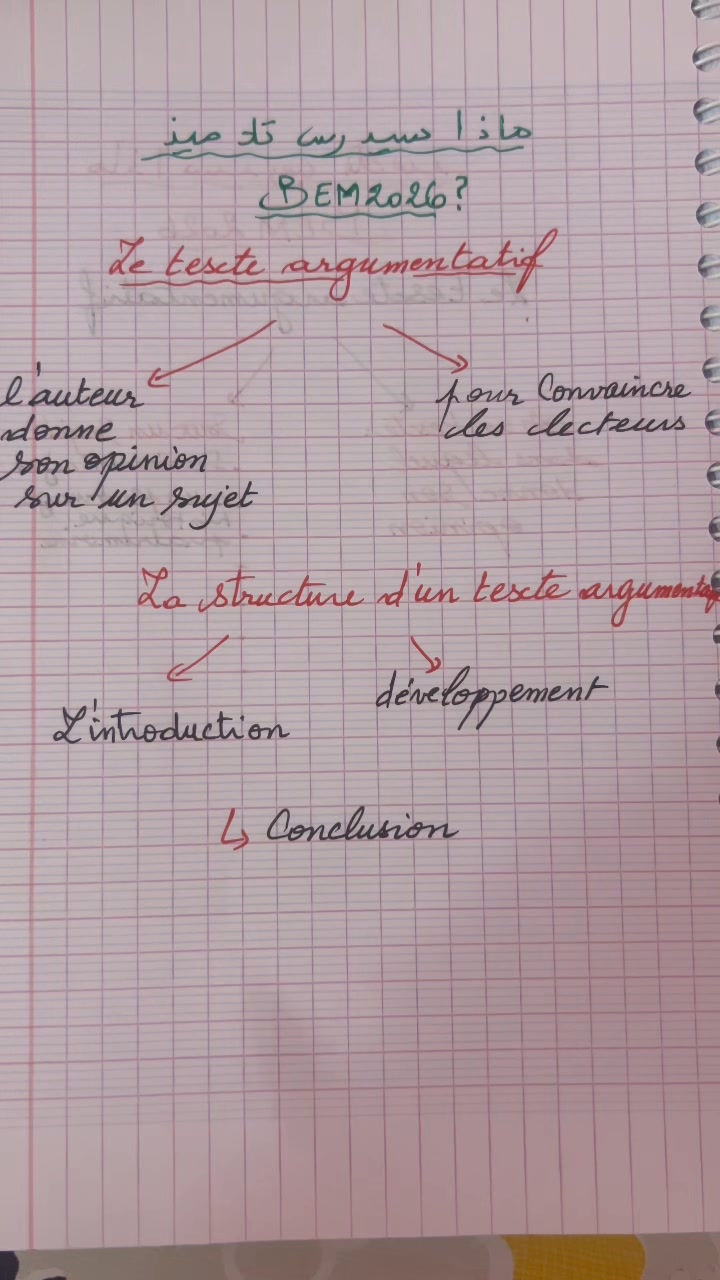 ماذا سيدرس تلاميذ
BEM2026?
Le texte argumentatif
l'auteur
donne
son opinion
sur un sujet
pour Convaincre
les lecteurs
La structure d'un texte argumentatif
L'introduction
développement
↳ Conclusion